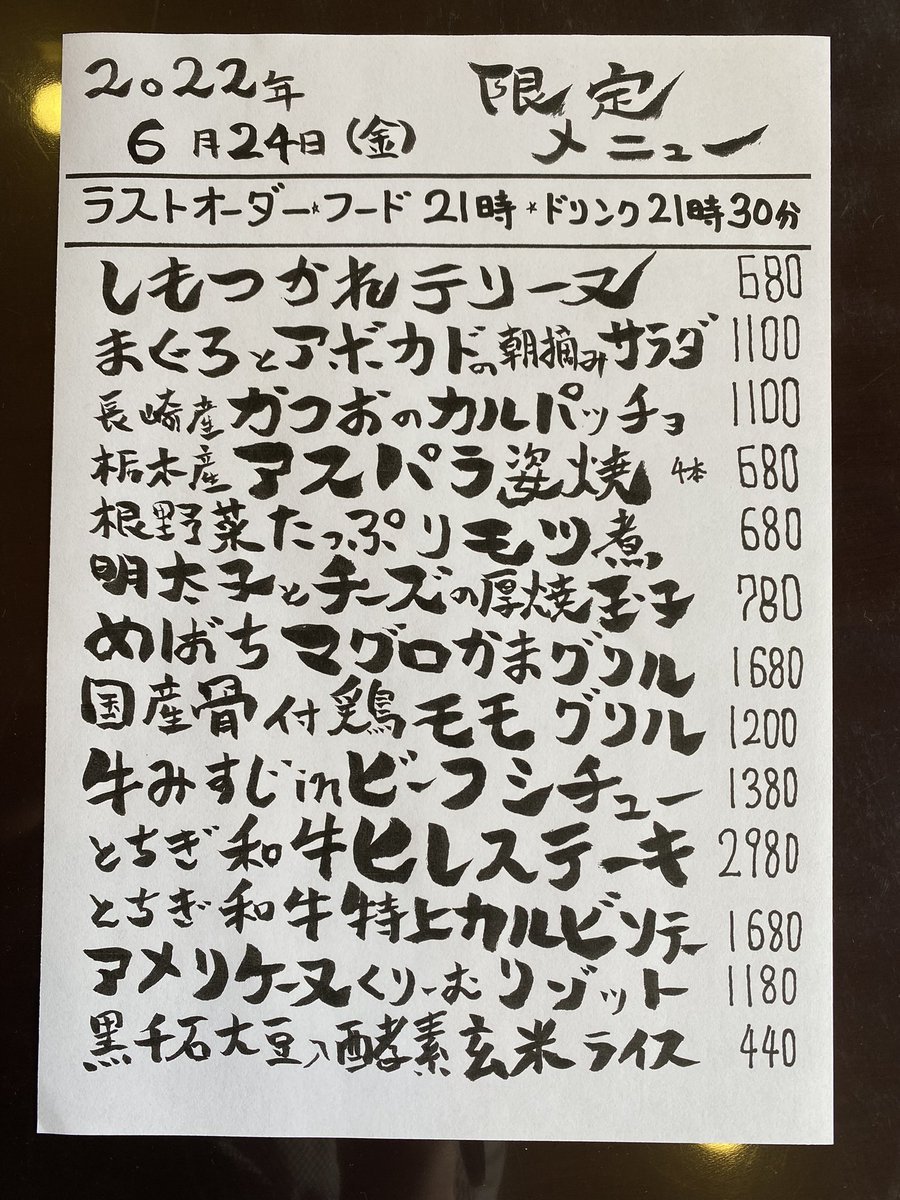 2022年 限定
6月24日(金) メニュー
ラストオーダー*フード21時*ドリンク21時30分
しもつかれテリーヌ 680
まぐろとアボカドの朝摘みサラダ 1100
長崎産かつおのカルパッチョ 1100
栃木産アスパラ姿焼 4本 680
根野菜たっぷりモツ煮 680
明太子とチーズの厚焼玉子 780
めばちマグロかまグリル 1680
国産骨付鶏モモグリル 1200
牛みすじinビーフシチュー 1380
とちぎ和牛ヒレステーキ 2980
とちぎ和牛特上カルビソテー 1680
アメリケーヌくりーむリゾット 1180
黒千石大豆入酵素玄米ライス 440